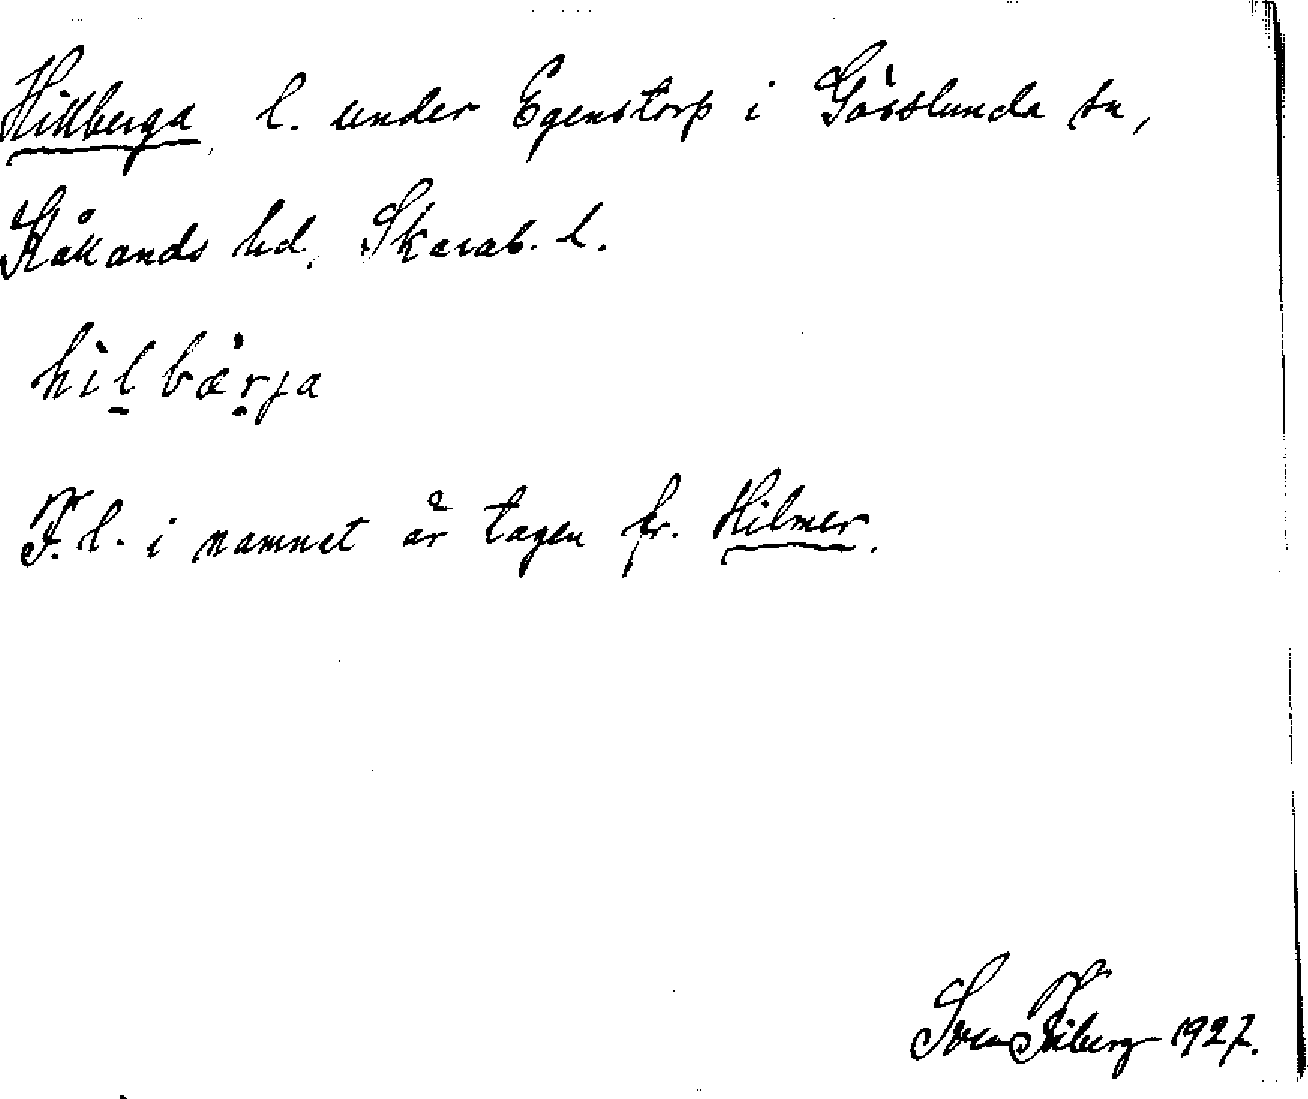 Hillberga, l. under Egenstorp i Gösslunda sn,
Kållands hd, Skarab. l.
hìlbæ̀rja
F. l. i namnet är tagen fr. Hilmer.
Sven Kiberg 1927.